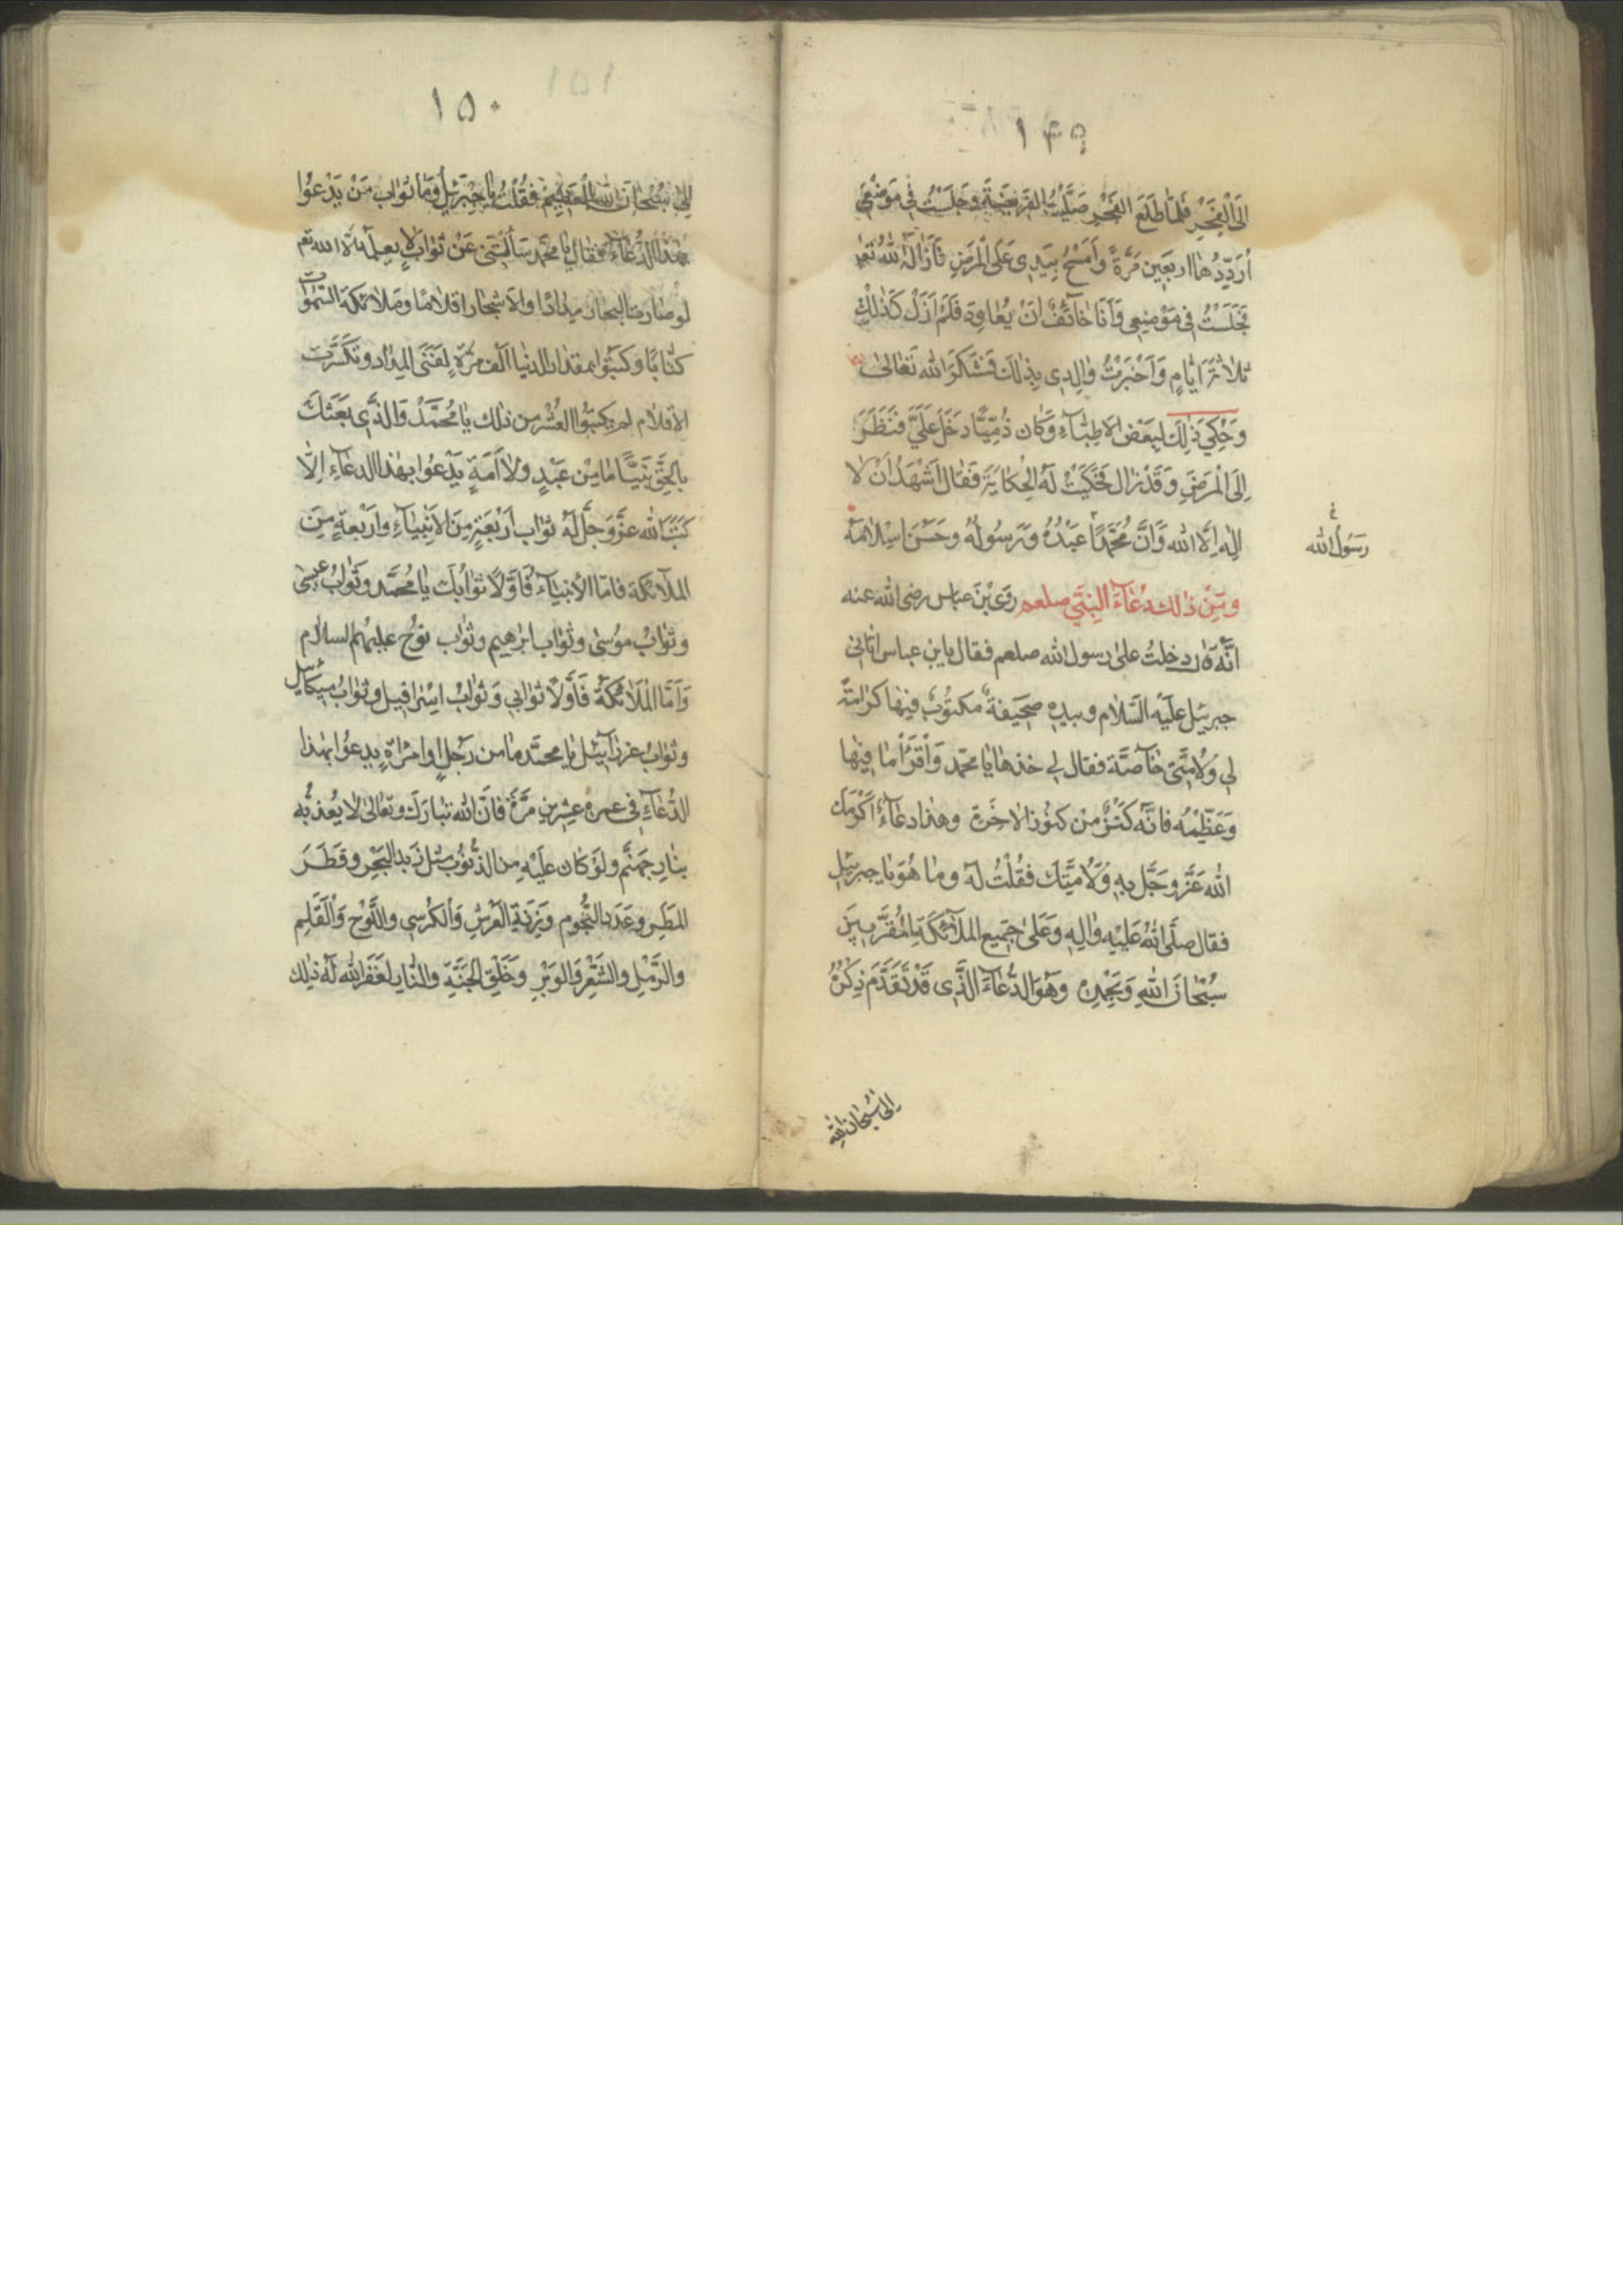 ١٤٩
اِلَى الْفَجْرِ فَلَمَّا طَلَعَ الفَجْر صَلَّيْتُ الفَرِيْضَةَ وَجَلَسْتُ فى مَوْضِعى
اُرَدِّدُهٰا اربَعِين مَرَّةً وَاَمْسَحُ بِيَدِى عَلَى الْمَرَضِ فَأَزٰالَهُ اللهُ تَعٰ
فَجَلَسْتُ فى مَوْضِعِى وَاَنَا خٰائِفٌ اَنْ يُعٰاوِدَ فَلَمْ اَزَلْ كَذٰلِكَ
ثَلاثَةَ اَيّٰامٍ وَاَخْبَرْتُ وٰالِدِى بِذٰلِكَ فَشَكَرَ الله تَعٰالىٰ
وَحَكِىَ ذٰلِكَ لِبَعْضِ الاَطِبّٰاءِ وَكٰان ذِمِّيًّا دَخَلَ عَلَىَّ فَنَظَرَ
اِلَى الْمَرَضِ وَقَدْ زٰال فَحَكَيْتُ لَهُ الحِكٰايَةَ فَقٰال اَشْهَدُ اَنْ لٰا
اِلٰهَ اِلَّا الله وَاَنَّ مُحَمَّدًا عَبْدُهُ وَرَسُولُهُ وحَسَنَ اِسْلامَهُ
رَسُولُ الله
ومِنْ ذٰلِك دُعٰاءُ النَّبِىِّ صلعم روَى بْنُ عباس رضى الله عنه
انَّهُ قال دخلتُ على رسول الله صلعم فقال يابن عباس اتانى
جبرئيل عليَه السَّلام وبيده صَحِيفةٌ مكتوُبٌ فيهٰا كرٰامَةٌ
لي وَلاُمَّتى خٰآصَّة فقال لي خذهٰا يٰا محمّد وَاقْرَأْ مٰا فيهٰا
وَعَظِّمْهُ فانَّهُ كَنْزٌ مِنْ كنُوُز الاخِرَة وهٰذا دعٰآءٌ اَكْرَمَكَ
الله عَزَّ وجَلَّ بِهِ وَلاُمَّتِك فقُلْتُ لَهُ ومٰا هُوَ يٰا جبرئيل
فقال صلَّى اللهُ عَلَيْهِ واٰلِهِ وَعَلىٰ جَميعِ الملآئكَةِ المُقَرَّبِينَ
سُبْحٰانَ اللهِ وَبِحَمْدِهِ وَهُوَ الدُّعٰآءُ الَّذِى قَدْ تَقَدَّمَ ذِكْرُهُ
اِلىٰ سُبْحٰان الله
١٥٠
اِلىٰ سُبْحٰانَ اللهِ الْعَظِيمْ فقُلْتُ يٰا جِبْرَئِيل وَمٰا ثوٰابُ مَنْ يَدْعُوا
بِهٰذَا الدُّعٰآءِ فَقٰال يٰا مُحَمَّد سَأَلْتَنى عَنْ ثوٰابٍ لا يعلمه الا الله تعٰ
لو صٰارت البحٰار مِدٰادًا والاَشجٰار اقلامًا ومَلائكة السَّمٰوٰات
كتّٰابًا وكتبُوا بمقدٰار الدنيٰا الف مَرَّةٍ لِفَنَى المِدٰاد وتكسَّرَت
الاقلام لم يكتبُوا العُشْر من ذلك يٰا مُحَمَّد وَالَّذِى بَعَثَكَ
بِالحَقِّ نَبِيًّا مٰا مِنْ عَبْدٍ وَلٰا اَمَةٍ يَدْعُوا بهٰذا الدعٰآءِ اِلّٰا
كَتَبَ الله عزَّ وَجَلَّ لَهُ ثوٰاب اَرْبَعَةٍ مِنَ الاَنِبيٰآءِ وَاَرْبَعةٍ مِنَ
الملآئكَة فامّا الأنبيٰآء فَاَوَّلاً ثوٰابُكَ يٰا مُحمَّد وثوٰابُ عيسىٰ
وثوٰابُ موُسىٰ وثوٰاب ابرٰهيم وثوٰاب نوُح عليهُم السلام
وَاَمَّا الْمَلائِكَةُ فَاَوَّلاً ثوٰابي وَثوٰابُ اِسْرافيل وثوٰابُ ميكآئيل
وثوٰابُ عزرٰآئيل يٰا محمَّد مٰا من رَجلٍ اوِ امْرَأةٍ يدعُوا بهٰذا
الدُّعٰآءِ فى عمره عِشرينَ مَرَّةً فانَّ الله تبٰارَك وتعٰالىٰ لا يُعذبُه
بنٰارِ جهنَّم ولَوْ كٰان عَلَيْهِ من الذُّنوُب مثل زَبد البَحْرِ وقَطَرَ
المَطَرِ وعَدَد النُّجُومِ وَزِنَةِ العَرْشِ وَالكُرْسِي واللَّوْح وَالْقَلَم
وَالرَّمْلِ والشَّعْرِ وَالوَبَرِ وَخَلْقِ الجَنَّةِ وَالنّٰار لغَفَر الله لَهُ ذٰلِك